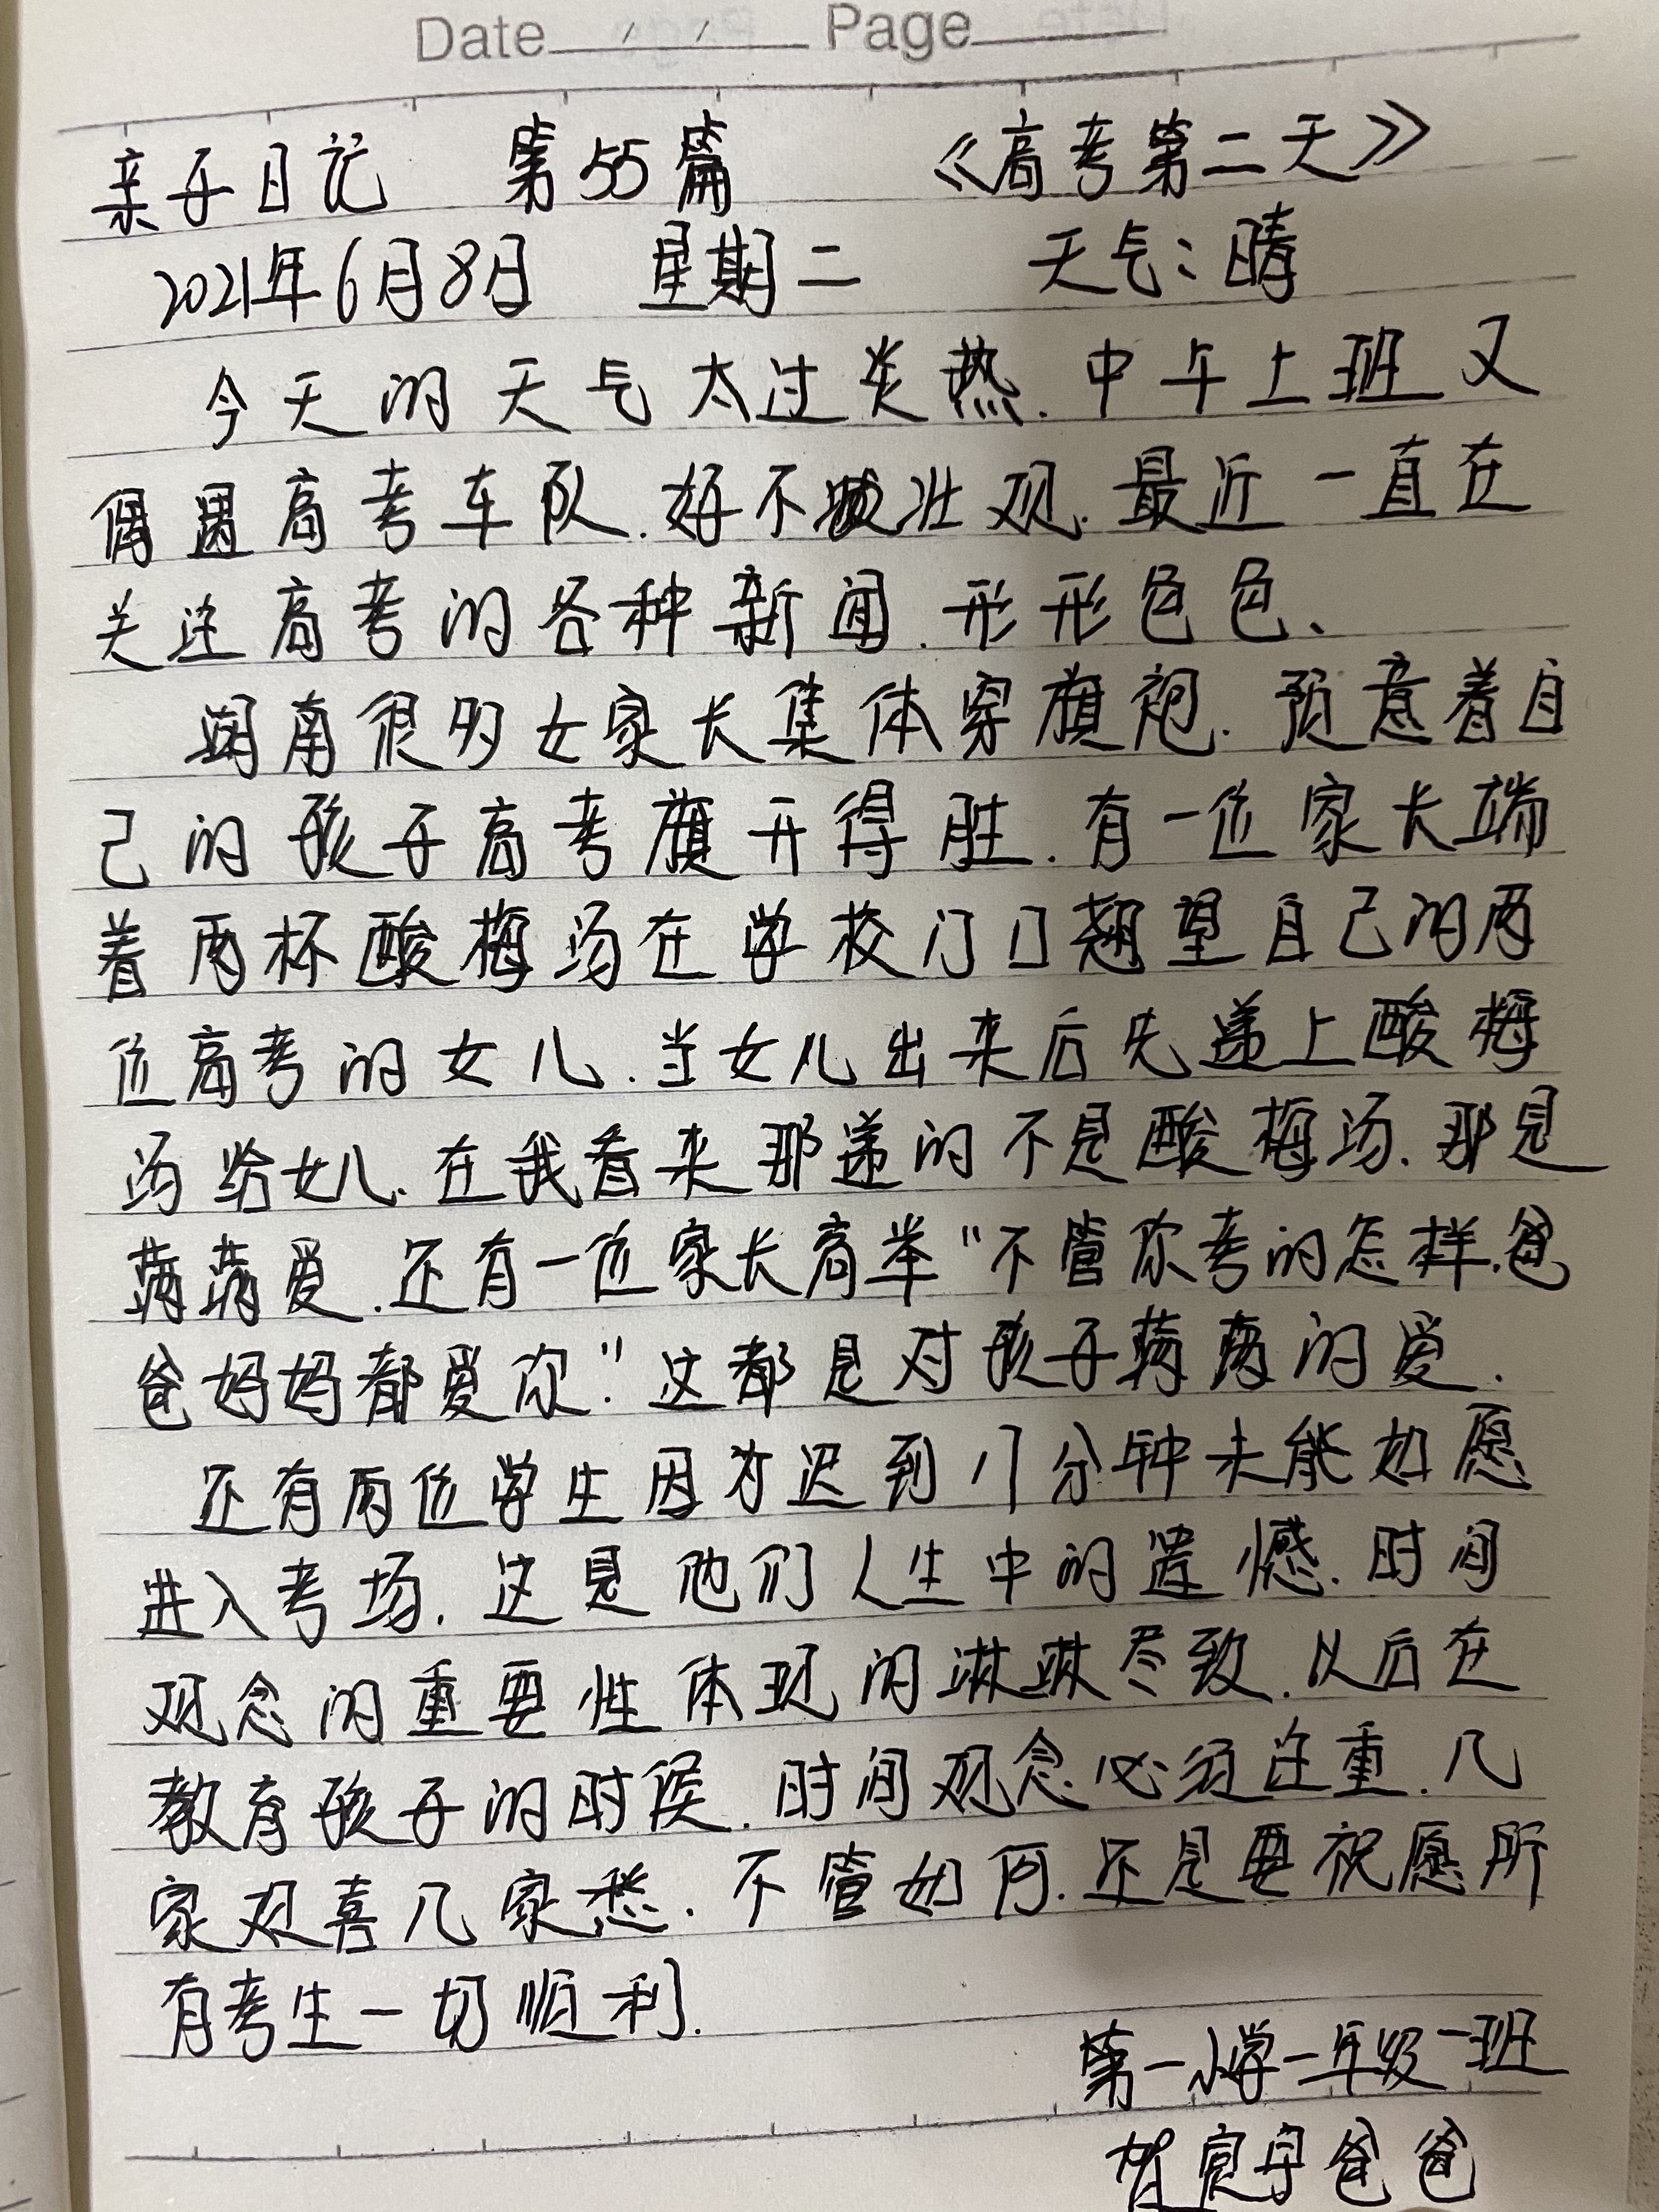 Date / / Page
亲子日记 第55篇 《高考第二天》
2021年6月8日 星期二 天气:晴
今天的天气太过炎热.中午上班又
偶遇高考车队.好不壮观.最近一直在
关注高考的各种新闻.形形色色、
湖南很多女家长集体穿旗袍.预意着自
己的孩子高考旗开得胜.有一位家长端
着两杯酸梅汤在学校门口翘望自己的两
位高考的女儿.当女儿出来后先递上酸梅
汤给女儿.在我看来那递的不是酸梅汤.那是
满满爱.还有一位家长高举"不管你考的怎样.爸
爸妈妈都爱你."这都是对孩子满满的爱.
还有两位学生因为迟到八分钟未能如愿
进入考场.这是他们人生中的遗憾.时间
观念的重要性体现的淋淋尽致.以后在
教育孩子的时侯.时间观念必须注重.几
家欢喜几家愁.不管如何.还是要祝愿所
有考生一切顺利.
第一小学一年级一班
爸爸